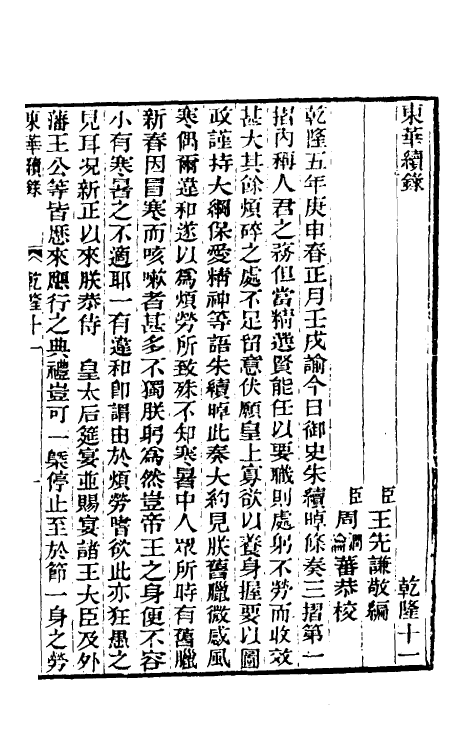 東華續錄　乾隆十一
臣王先謙敬編
臣周潤蕃瀹蕃恭校
乾隆五年庚申春正月壬戌諭今日御史朱續晫條奏三摺第一
摺內稱人君之務但當精選賢能任以要職則處躬不勞而收效
甚大其餘煩碎之處不足留意伏願皇上寡欲以養身握要以圖
政謹持大綱保愛精神等語朱續晫此奏大約見朕舊臘微感風
寒偶爾違和遂以為煩勞所致殊不知寒暑中人眾所時有舊臘
新春因冒寒而咳嗽者甚多不獨朕躬為然豈帝王之身便不容
小有寒暑之不適耶一有違和卽謂由於煩勞嗜欲此亦狂愚之
見耳况新正以來朕恭侍　皇太后筵宴並賜宴諸王大臣及外
藩王公等皆歷來應行之典禮豈可一槩停止至於節一身之勞
東華續錄　乾隆十一　一